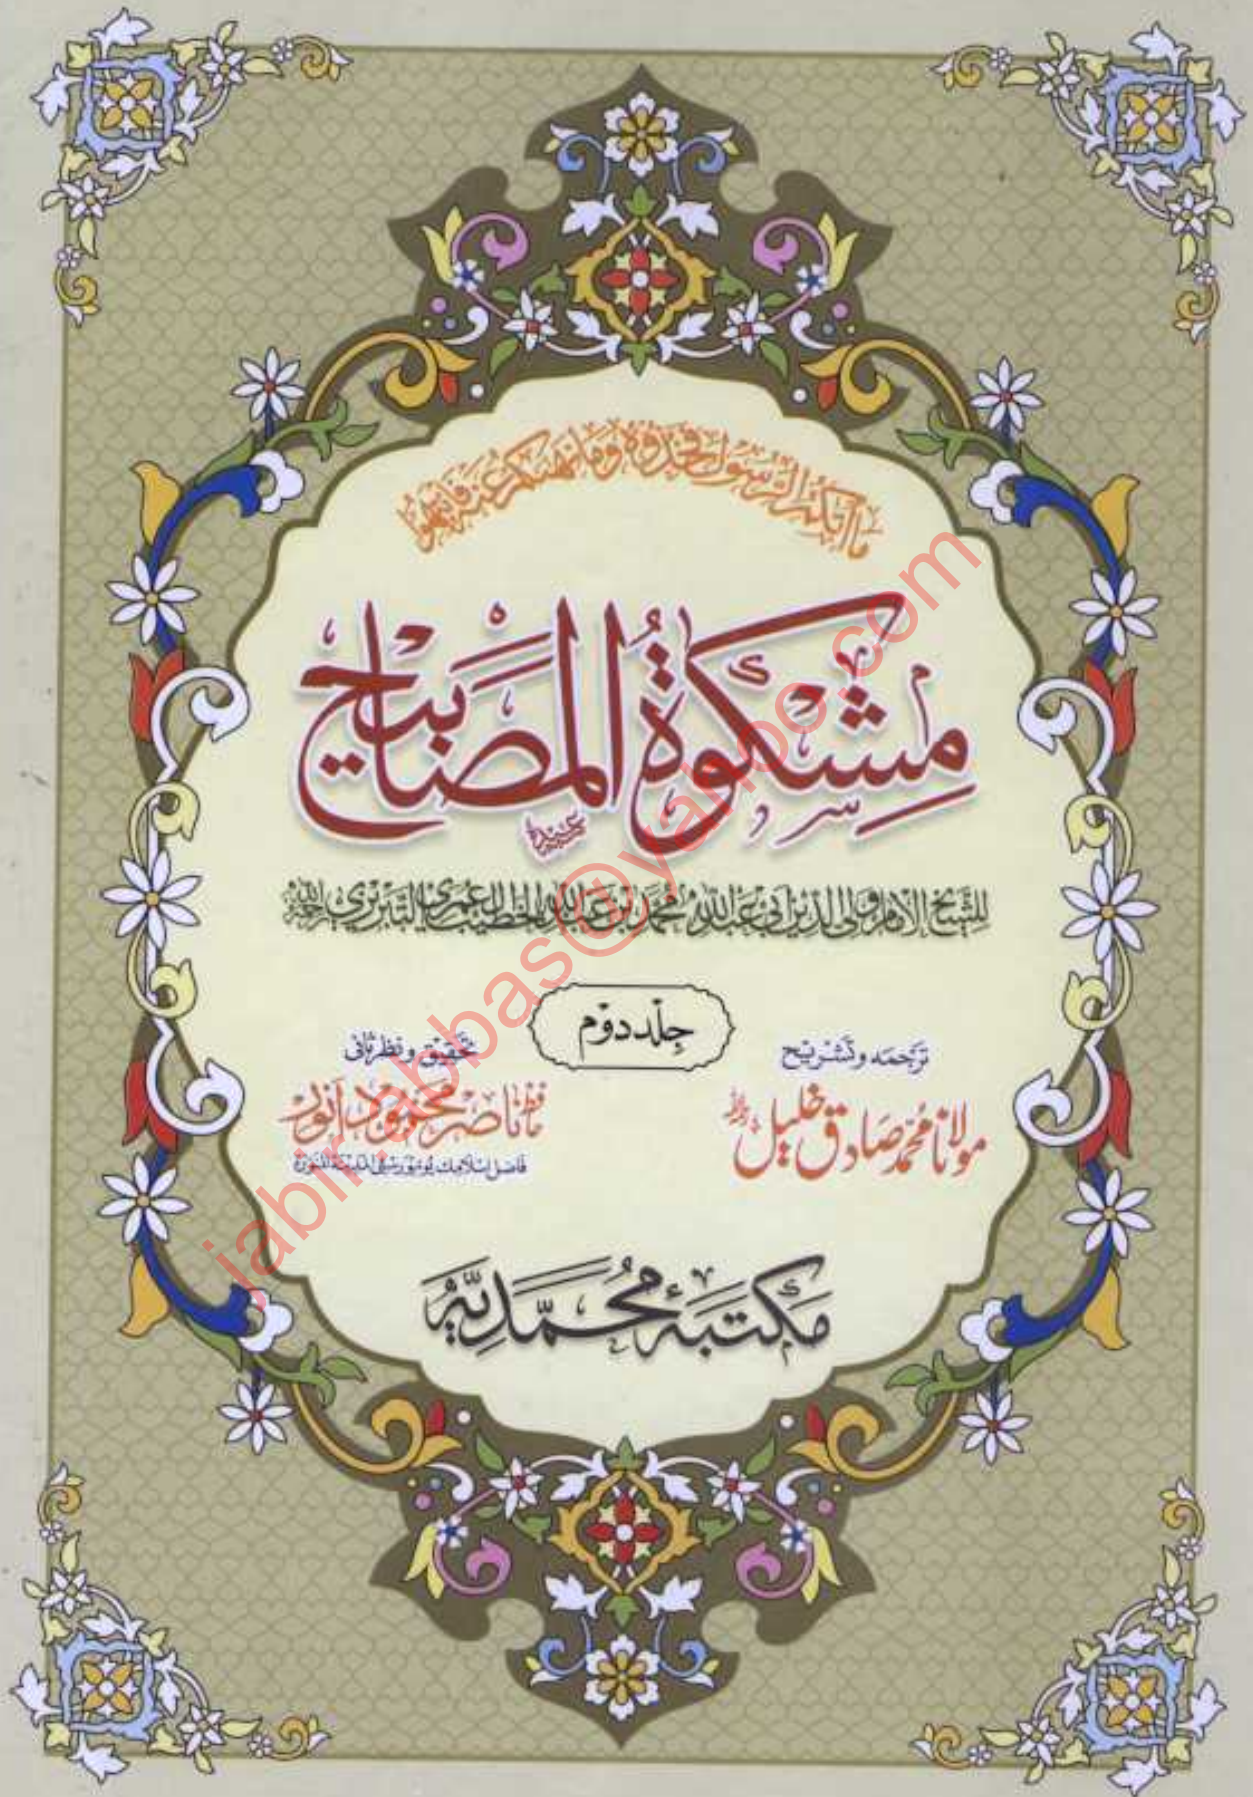 ما آتكم الرسول فخذوه وما نهىكم عنه فانتهوا
مِشْكٰوةُ الْمَصَابِيْح
للشيخ الإمام ولي الدين أبي عبد الله محمد بن عبد الله الخطيب العمري التبريزي رحمه الله
جِلد دوم
ترجمہ و تشریح
مولانا محمد صادق خلیل
تحقیق و نظر ثانی
حافظ ناصر محمود انور
فاضل اسلامک یونیورسٹی المدینۃ المنورۃ
مکتبۂ محمدیہ
jabir.abbas@yahoo.com